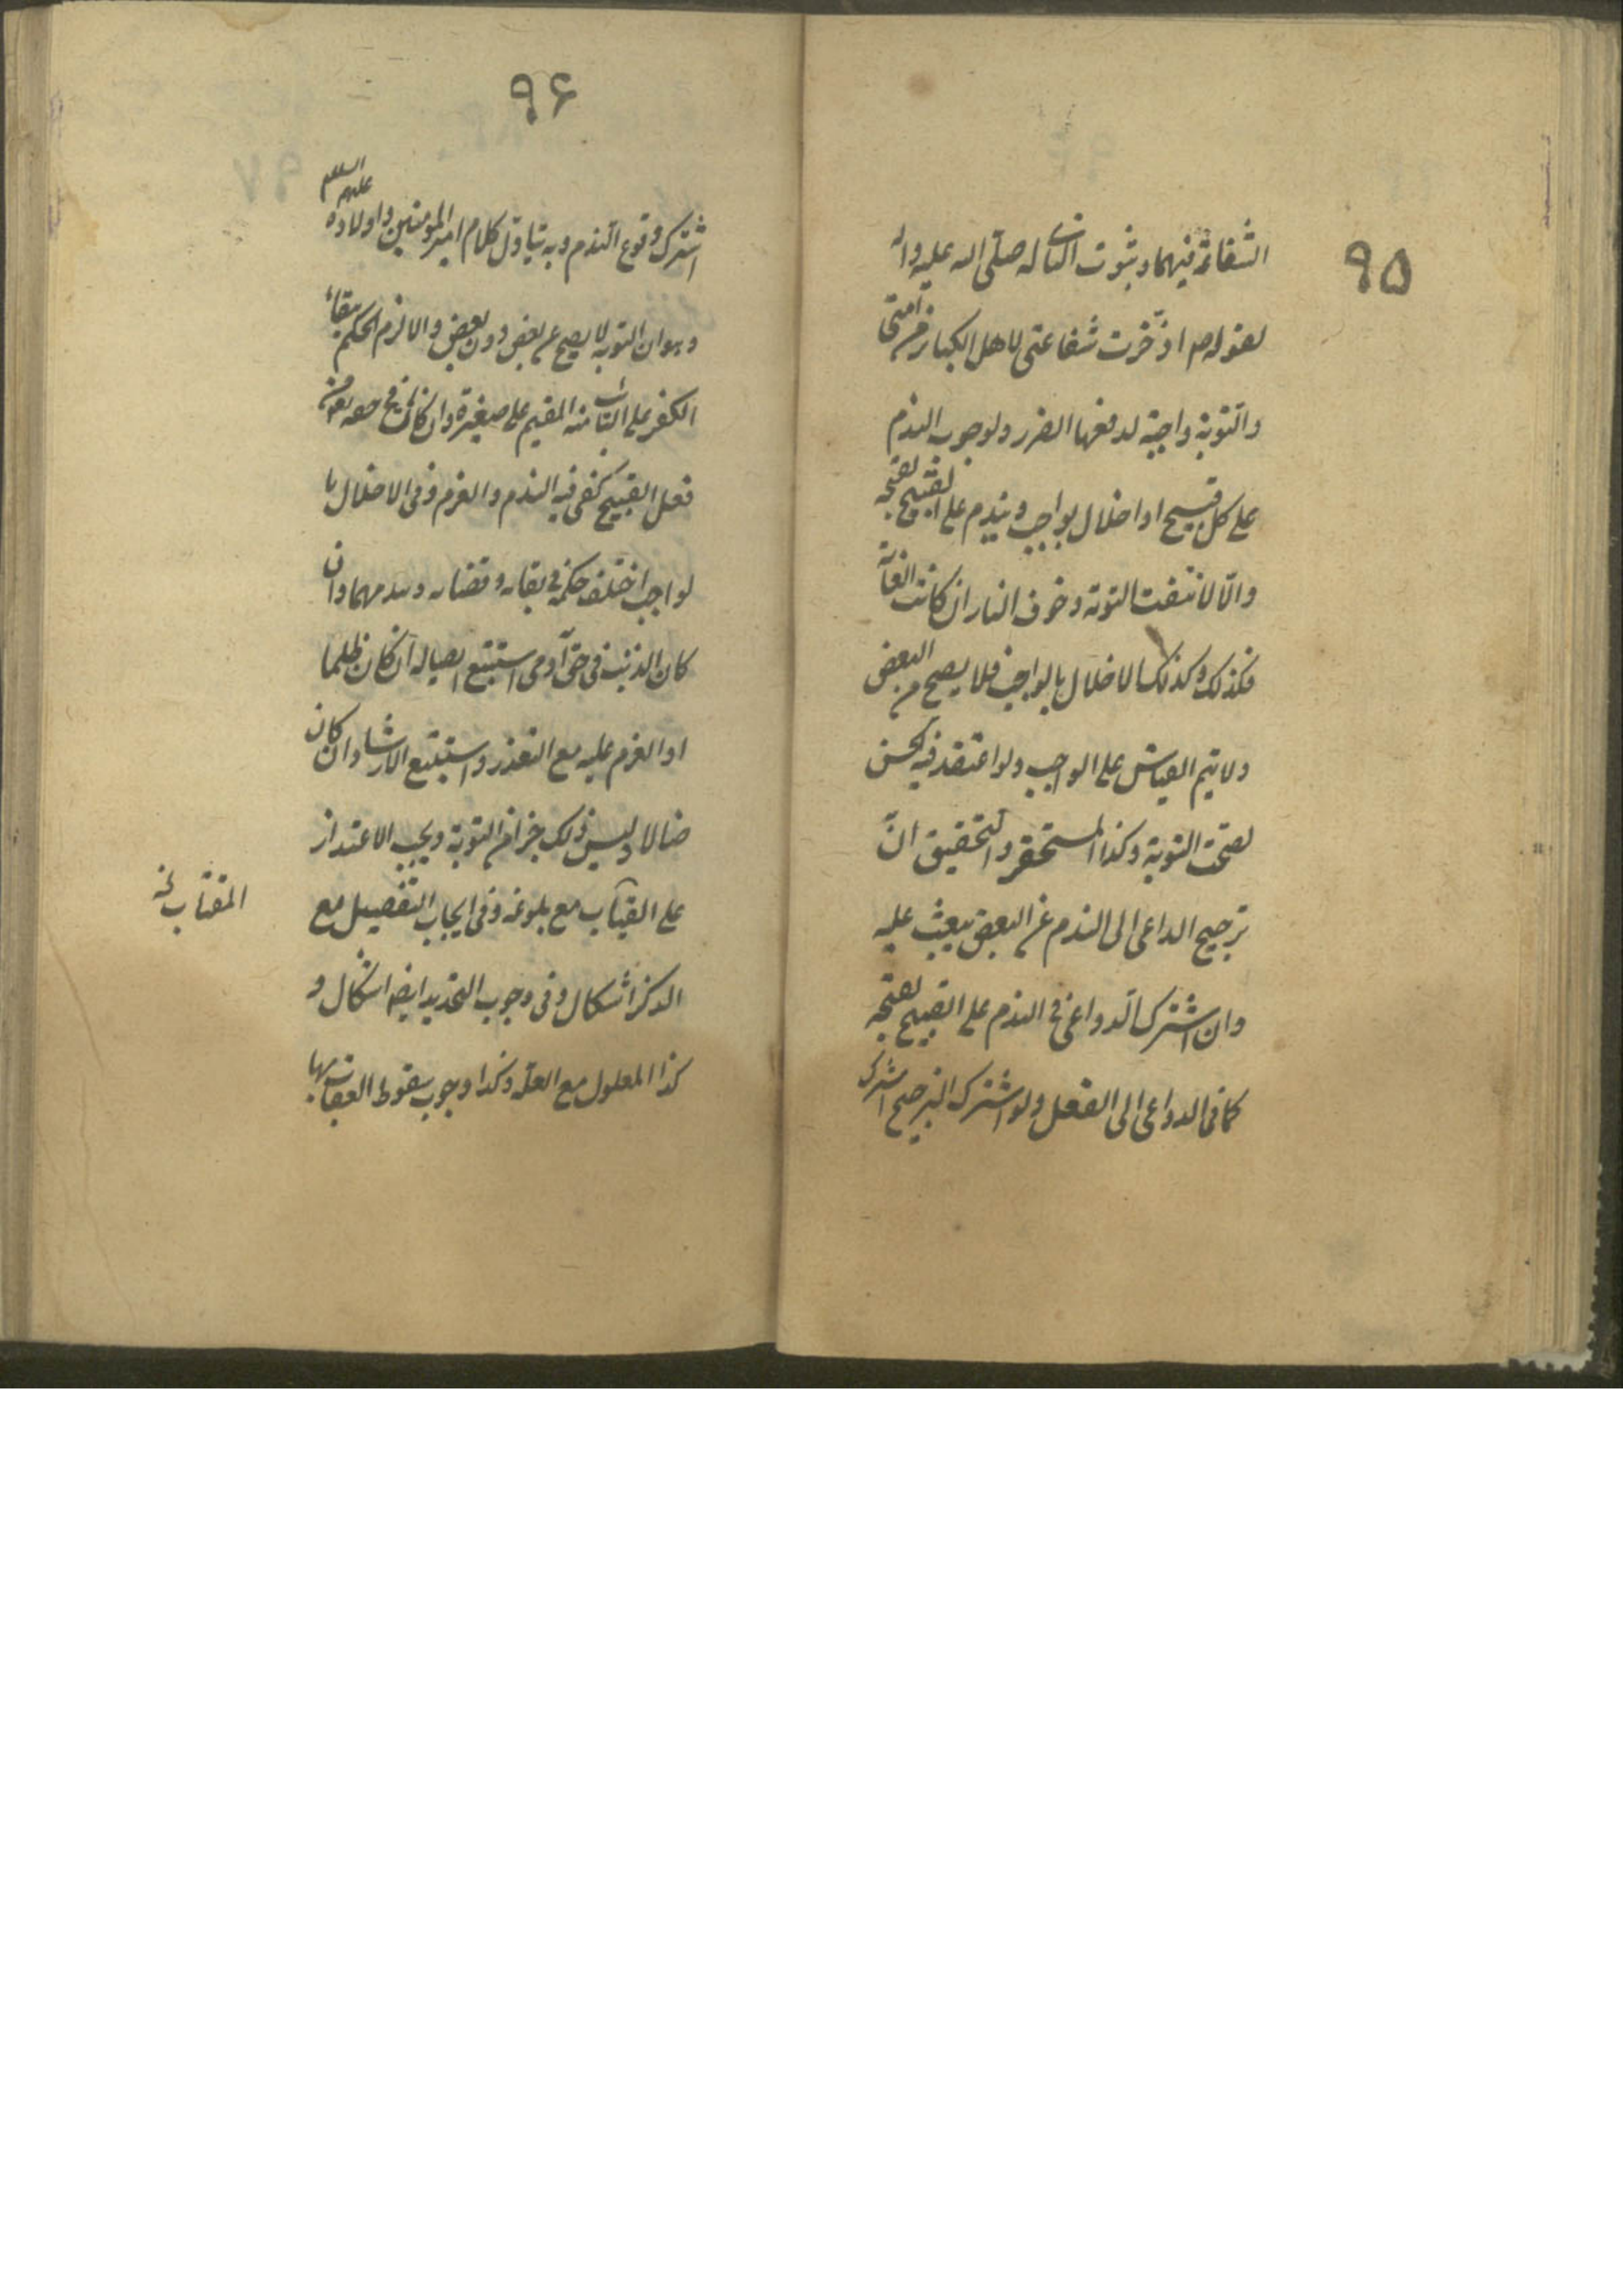 ٩۵
الشفاعة فيهما وبثبوت الثانى له صلّى الله عليه واله
لقوله ص ادّخرت شفاعتى لاهل الكبائر من امتى
والتوبة واجبة لدفعها الضرر ولوجوب الندم
على كل قبيح او اخلال بواجب ويندم على القبيح لقبحه
والّا لانتفت التوبة وخوف النار ان كانت الغاية
فكذلك وكذلك الاخلال بالواجب فلا يصح من البعض
ولا يتم القياس على الواجب ولو اعتقد فيه الحسن
لصحّت التوبة وكذا المستحقر والتحقيق انّ
ترجيح الداعى الى الندم عن البعض يبعث عليه
وان اشترك الدواعى فى الندم على القبيح لقبحه
كما فى الدواعى الى الفعل ولو اشترك الترجيح اشترك
٩۶
اشترك وقوع الندم وبه يتاوّل كلام امير المومنين واولاده عليهم السلم
وهو ان التوبة لا يصح عن بعض دون بعض والا لزم الحكم ببقاء
الكفر على التائب منه المقيم على صغيرة وان كان فى حقه تعم من
فعل القبيح كفى فيه الندم والعزم وفى الاخلال با
لواجب اختلف حكمه فى بقائه وقضائه وان
كان الذنب فى حق آدمى استتبع ايصاله ان كان ظلما
او العزم عليه مع التعذر واستتبع الارشاد ان كان
ضالا وليس ذلك جزا من التوبة ويجب الاعتذار
على المغتاب مع بلوغه وفى ايجاب التفصيل مع
المغتاب خ
الذكر اشكال وفى وجوب التجديد ايضا اشكال و
كذا المعلول مع العلة وكذا وجوب سقوط العقاب بها